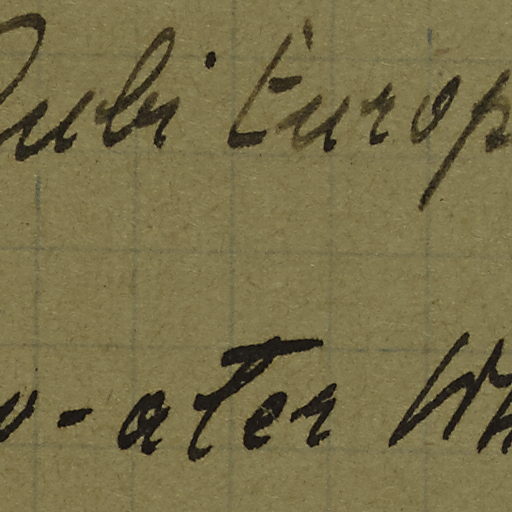 Rubi Europ
o-ater Wh